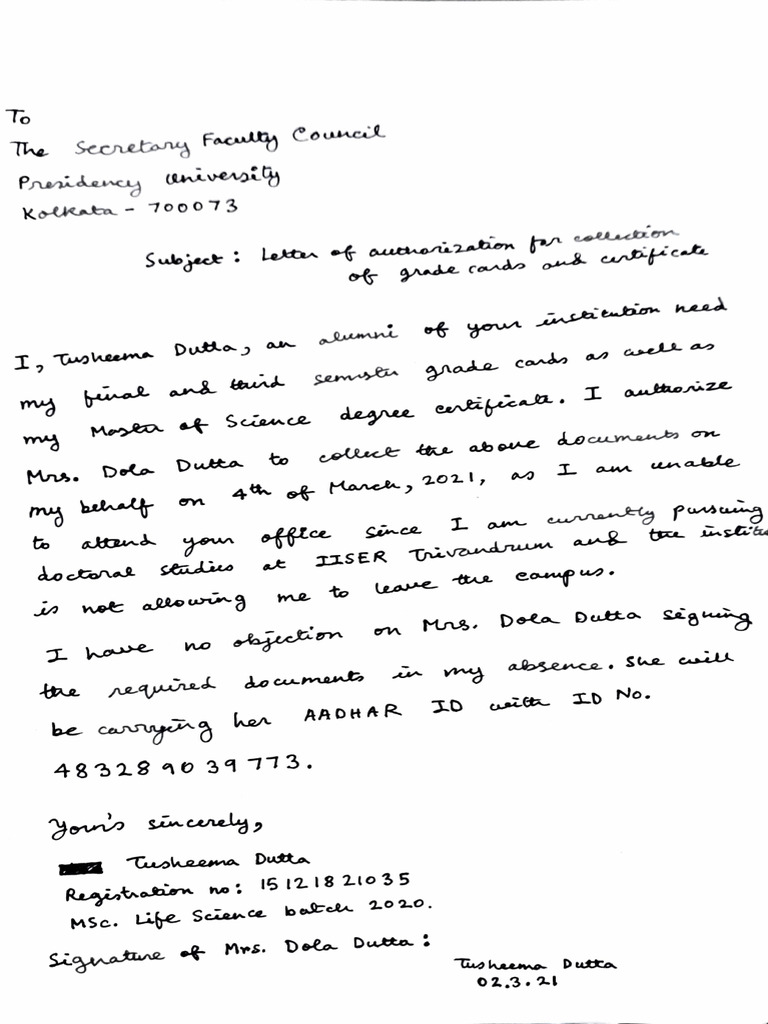 To
The Secretary Faculty Council
Presidency University
Kolkata - 700073
Subject: Letter of authorization for collection
of grade cards and certificate
I, Tusheema Dutta, an alumni of your institution need
my final and third semster grade cards as well as
my Master of Science degree certificate. I authorize
Mrs. Dola Dutta to collect the above documents on
my behalf on 4th of March, 2021, as I am unable
to attend your office since I am currently pursuing
doctoral studies at IISER Trivandrum and the institu
is not allowing me to leave the campus.
I have no objection on Mrs. Dola Dutta signing
the required documents in my absence. She will
be carrying her AADHAR ID with ID No.
483289039773.
Your's sincerely,
Tusheema Dutta
Registration no: 15121821035
MSc. Life Science batch 2020.
Signature of Mrs. Dola Dutta:
Tusheema Dutta
02.3.21